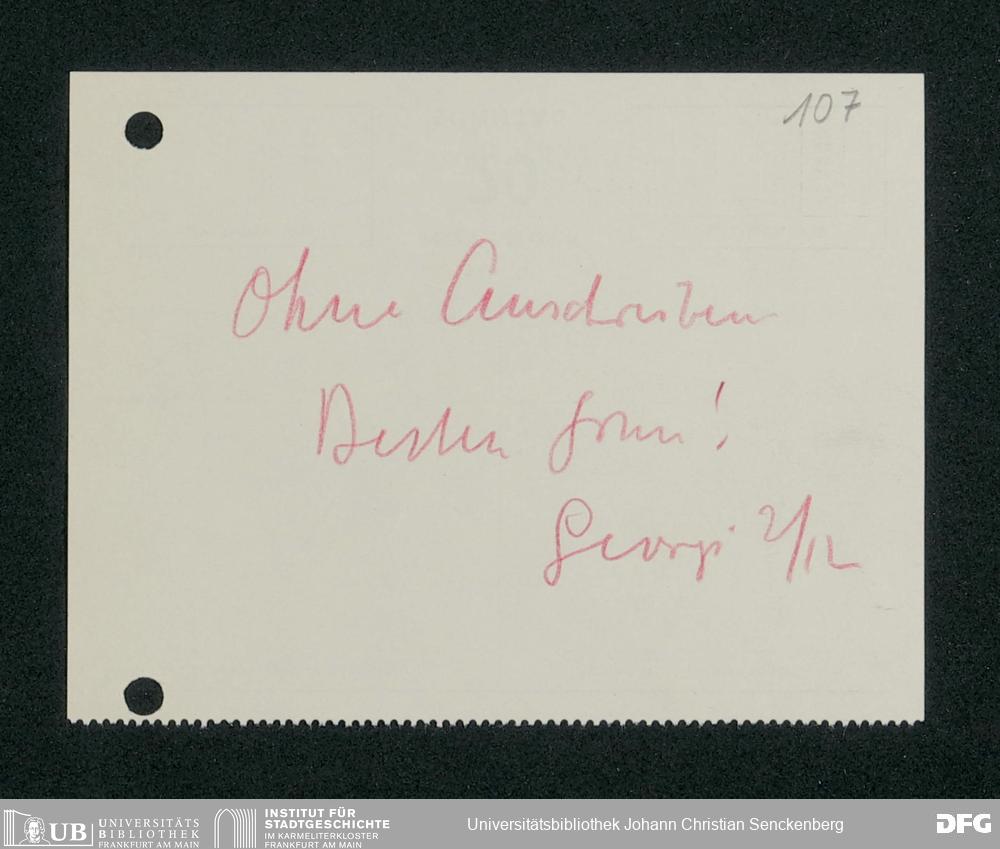 107
Ohne Anschreiben
Besten Gruss!
Georgi 2/12
UB UNIVERSITÄTS
BIBLIOTHEK
FRANKFURT AM MAIN
INSTITUT FÜR
STADTGESCHICHTE
IM KARMELITERKLOSTER
FRANKFURT AM MAIN
Universitätsbibliothek Johann Christian Senckenberg
DFG